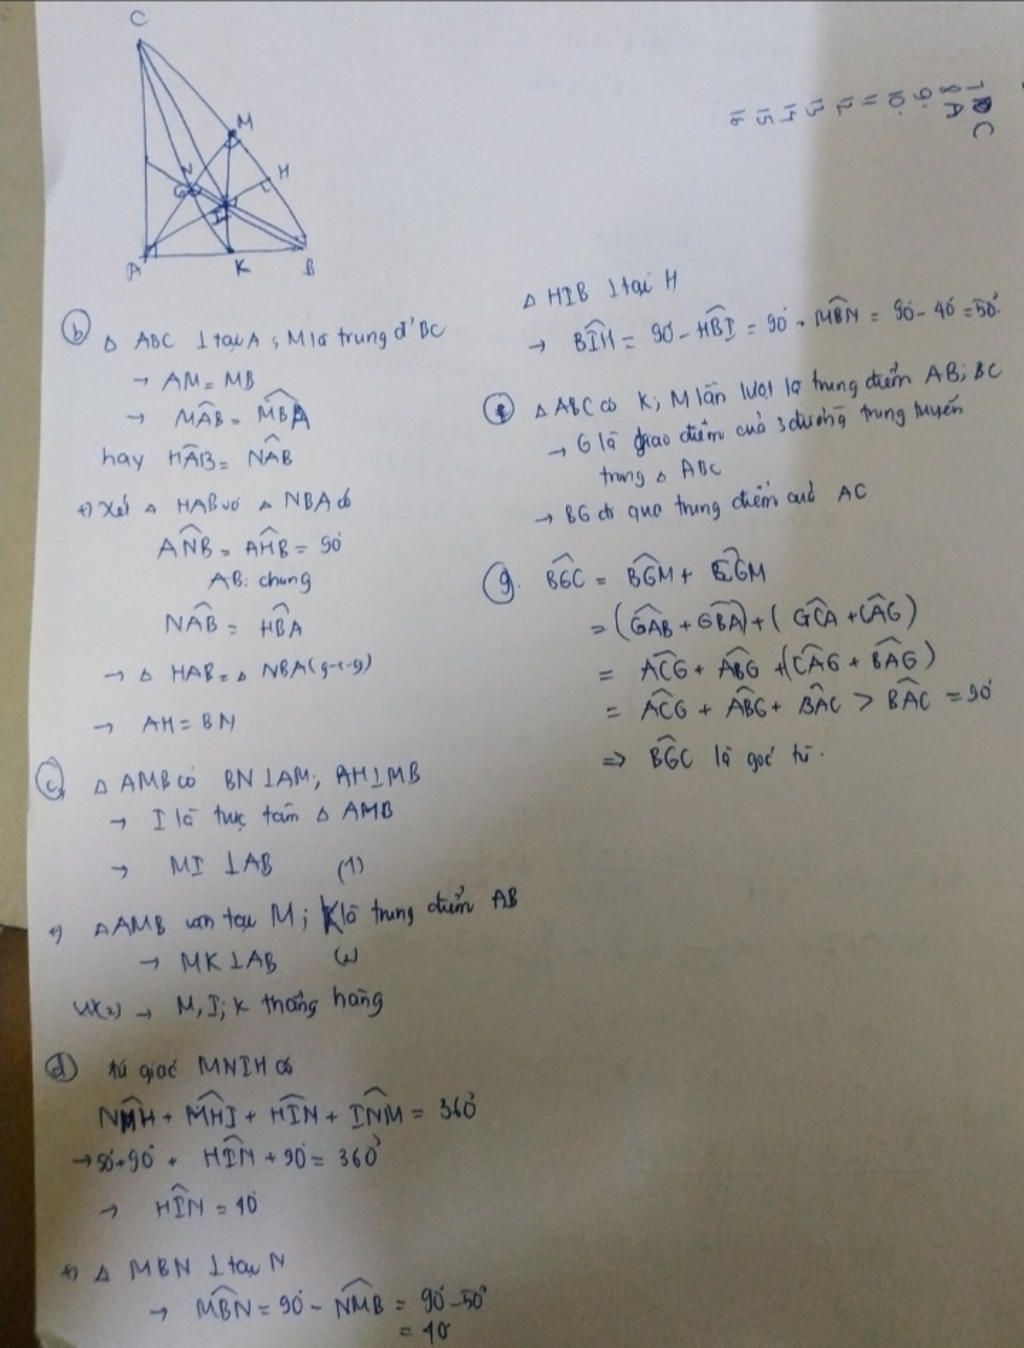 C
M
H
N
G
I
A
K
B
7 D C
8 A
9.
10.
11
12
13
14
15
16
b) Δ ABC ⊥ tại A ; M là trung đ' BC
→ AM = MB
→ MÂB = MB̂A
hay HÂB = NÂB
+) Xét Δ HAB và Δ NBA có
AN̂B = AĤB = 90°
AB: chung
NÂB = HB̂A
→ Δ HAB = Δ NBA (g-c-g)
→ AH = BN
c) Δ AMB có BN ⊥ AM; AH ⊥ MB
→ I là trực tâm Δ AMB
→ MI ⊥ AB (1)
+) Δ AMB cân tại M; K là trung điểm AB
→ MK ⊥ AB (2)
(1)(2) → M, I; K thẳng hàng
d) tứ giác MNIH có
NM̂H + MĤI + HÎN + IN̂M = 360°
→ 50° + 90° + HÎN + 90° = 360°
→ HÎN = 40°
+) Δ MBN ⊥ tại N
→ MB̂N = 90° - NM̂B = 90° - 50°
= 40°
Δ HIB ⊥ tại H
→ BÎH = 90° - HB̂I = 90° - MB̂N = 90° - 40° = 50°.
e) Δ ABC có K; M lần lượt là trung điểm AB; BC
→ G là giao điểm của 3 đường trung tuyến
trong Δ ABC
→ BG đi qua trung điểm của AC
g. BĜC = BĜM + CĜM
= (GÂB + GB̂A) + ( GĈA + CÂG )
= AĈG + AB̂G + (CÂG + BÂG)
= AĈG + AB̂G + BÂC > BÂC = 90°
⇒ BĜC là góc tù.